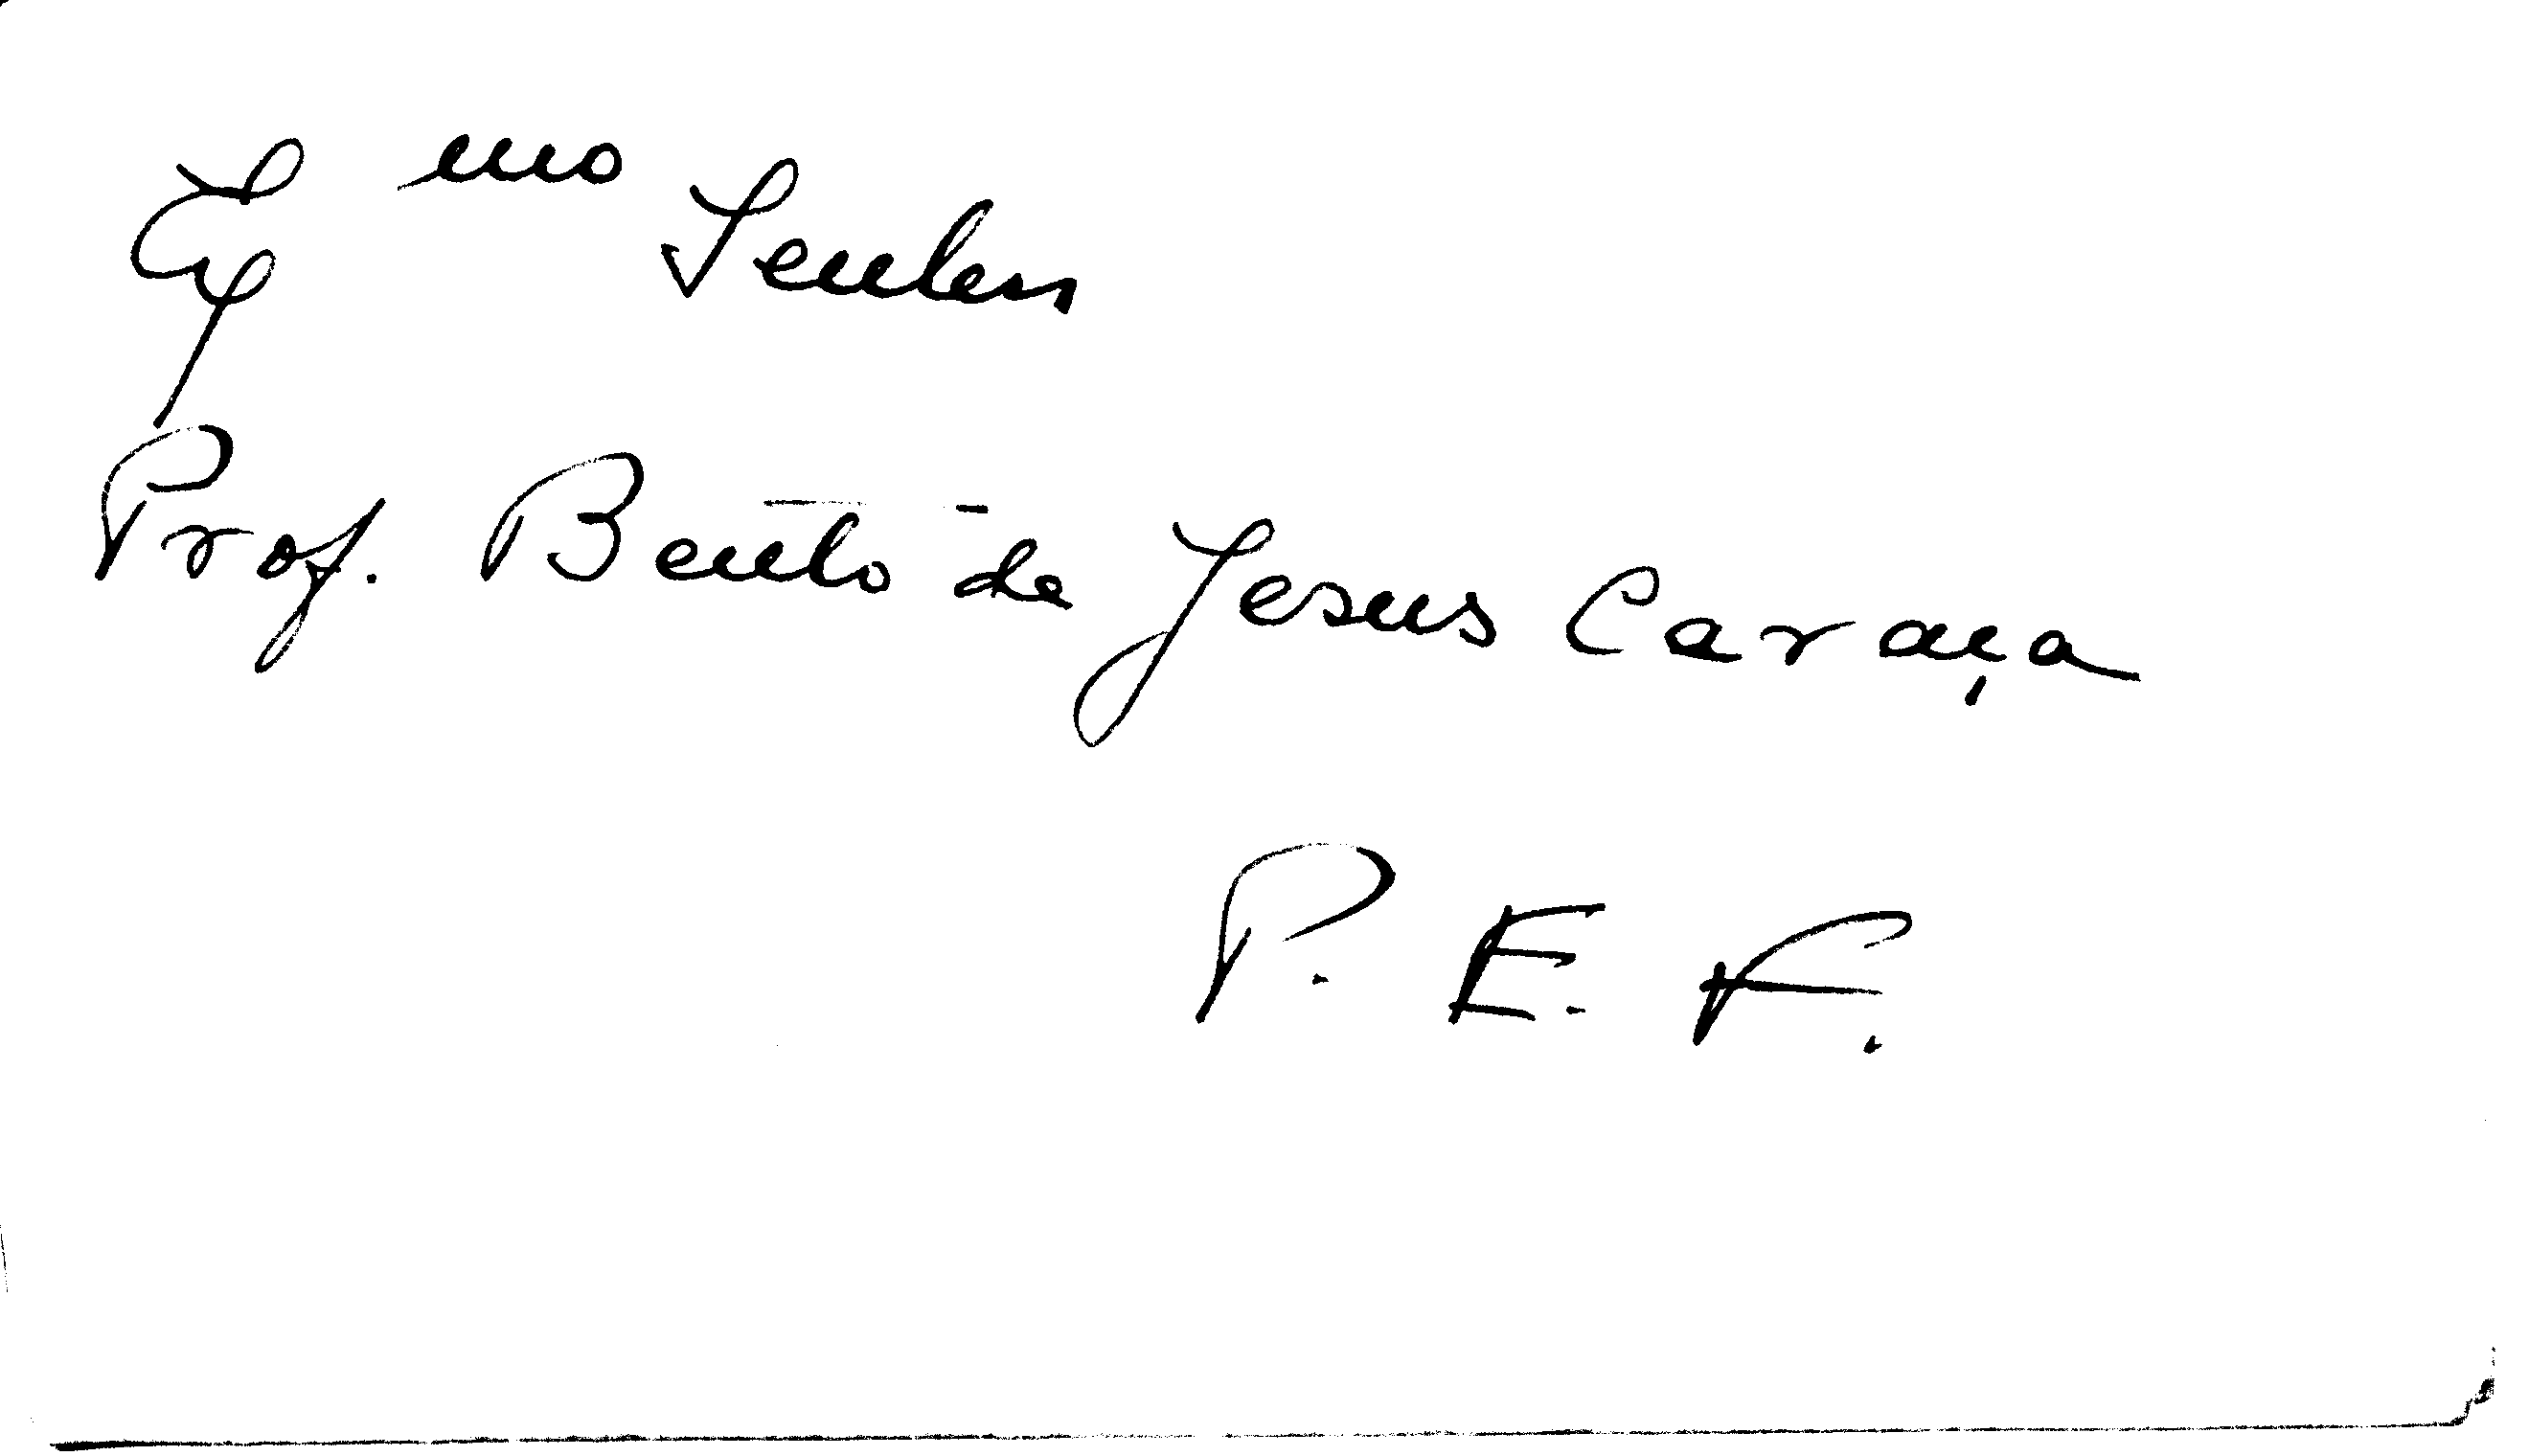 Ex.mo Senhor
Prof. Bento de Jesus Caraça
P. E. F.